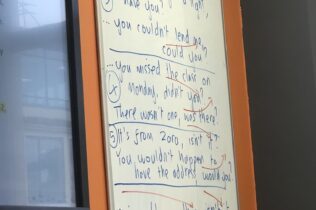 have you?
... you couldn't lend me,
could you?
... you missed the class on
④ Monday, didn't you?
There wasn't one, was there?
⑤ It's from Zoro, isn't it?
You, wouldn't happen to
have the address would you?